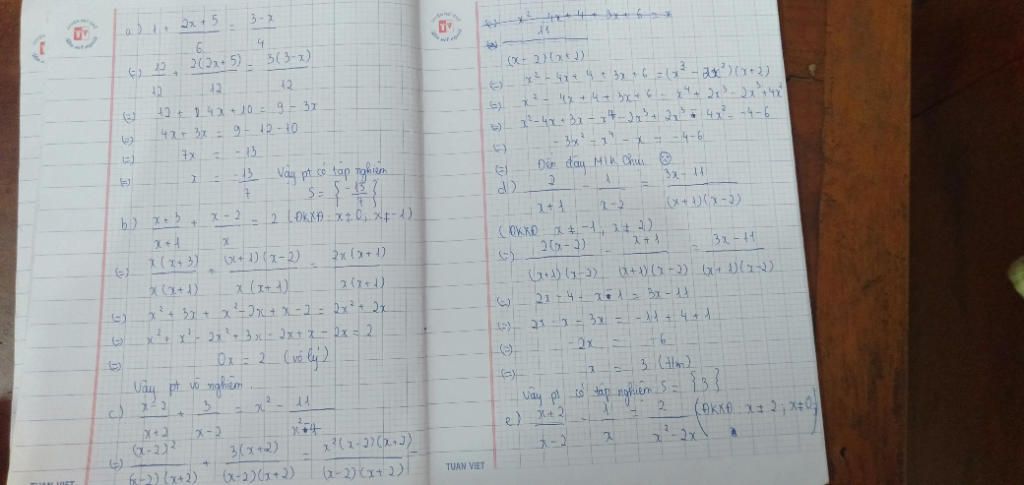 a) 1 + (2x+5)/6 = (3-x)/4
(=) 12/12 + 2(2x+5)/12 = 3(3-x)/12
(=) 12 + 4x + 10 = 9 - 3x
(=) 4x + 3x = 9 - 12 - 10
(=) 7x = -13
(=) x = -13/7 Vậy pt có tập nghiệm
S = {-13/7}
b) (x+3)/(x+1) + (x-2)/x = 2 (ĐKXĐ: x≠0, x≠-1)
(=) x(x+3)/x(x+1) + (x+1)(x-2)/x(x+1) = 2x(x+1)/x(x+1)
(=) x² + 3x + x² - 2x + x - 2 = 2x² + 2x
(=) x² + x² - 2x² + 3x - 2x + x - 2x = 2
(=) 0x = 2 (vô lý)
Vậy pt vô nghiệm.
c) (x-2)/(x+2) + 3/(x-2) = x² - 11/(x²-4)
(=) (x-2)²/(x-2)(x+2) + 3(x+2)/(x-2)(x+2) = x²(x-2)(x+2)/(x-2)(x+2) -
TUAN VIET
x² - 4x + 4 + 3x + 6 = x
11/(x-2)(x+2)
(=) x² - 4x + 4 + 3x + 6 = (x³ - 2x²)(x+2)
(=) x² - 4x + 4 + 3x + 6 = x⁴ + 2x³ - 2x³ + 4x²
(=) x² - 4x + 3x - x⁴ - 2x³ + 2x³ - 4x² = -4-6
(=) -3x² - x⁴ - x = -4-6
(=) Đến đây Mik chịu ☹
d) 2/(x+1) - 1/(x-2) = (3x-11)/(x+1)(x-2)
(ĐKXĐ: x≠-1, x≠2)
(=) 2(x-2)/(x+1)(x-2) - (x+1)/(x+1)(x-2) = (3x-11)/(x+1)(x-2)
(=) 2x - 4 - x - 1 = 3x - 11
(=) 2x - x - 3x = -11 + 4 + 1
(=) -2x = -6
(=) x = 3 (t/m)
Vậy pt có tập nghiệm S = {3}
e) (x+2)/(x-2) - 1/x = 2/(x²-2x) (ĐKXĐ: x≠2; x≠0)
TUAN VIET